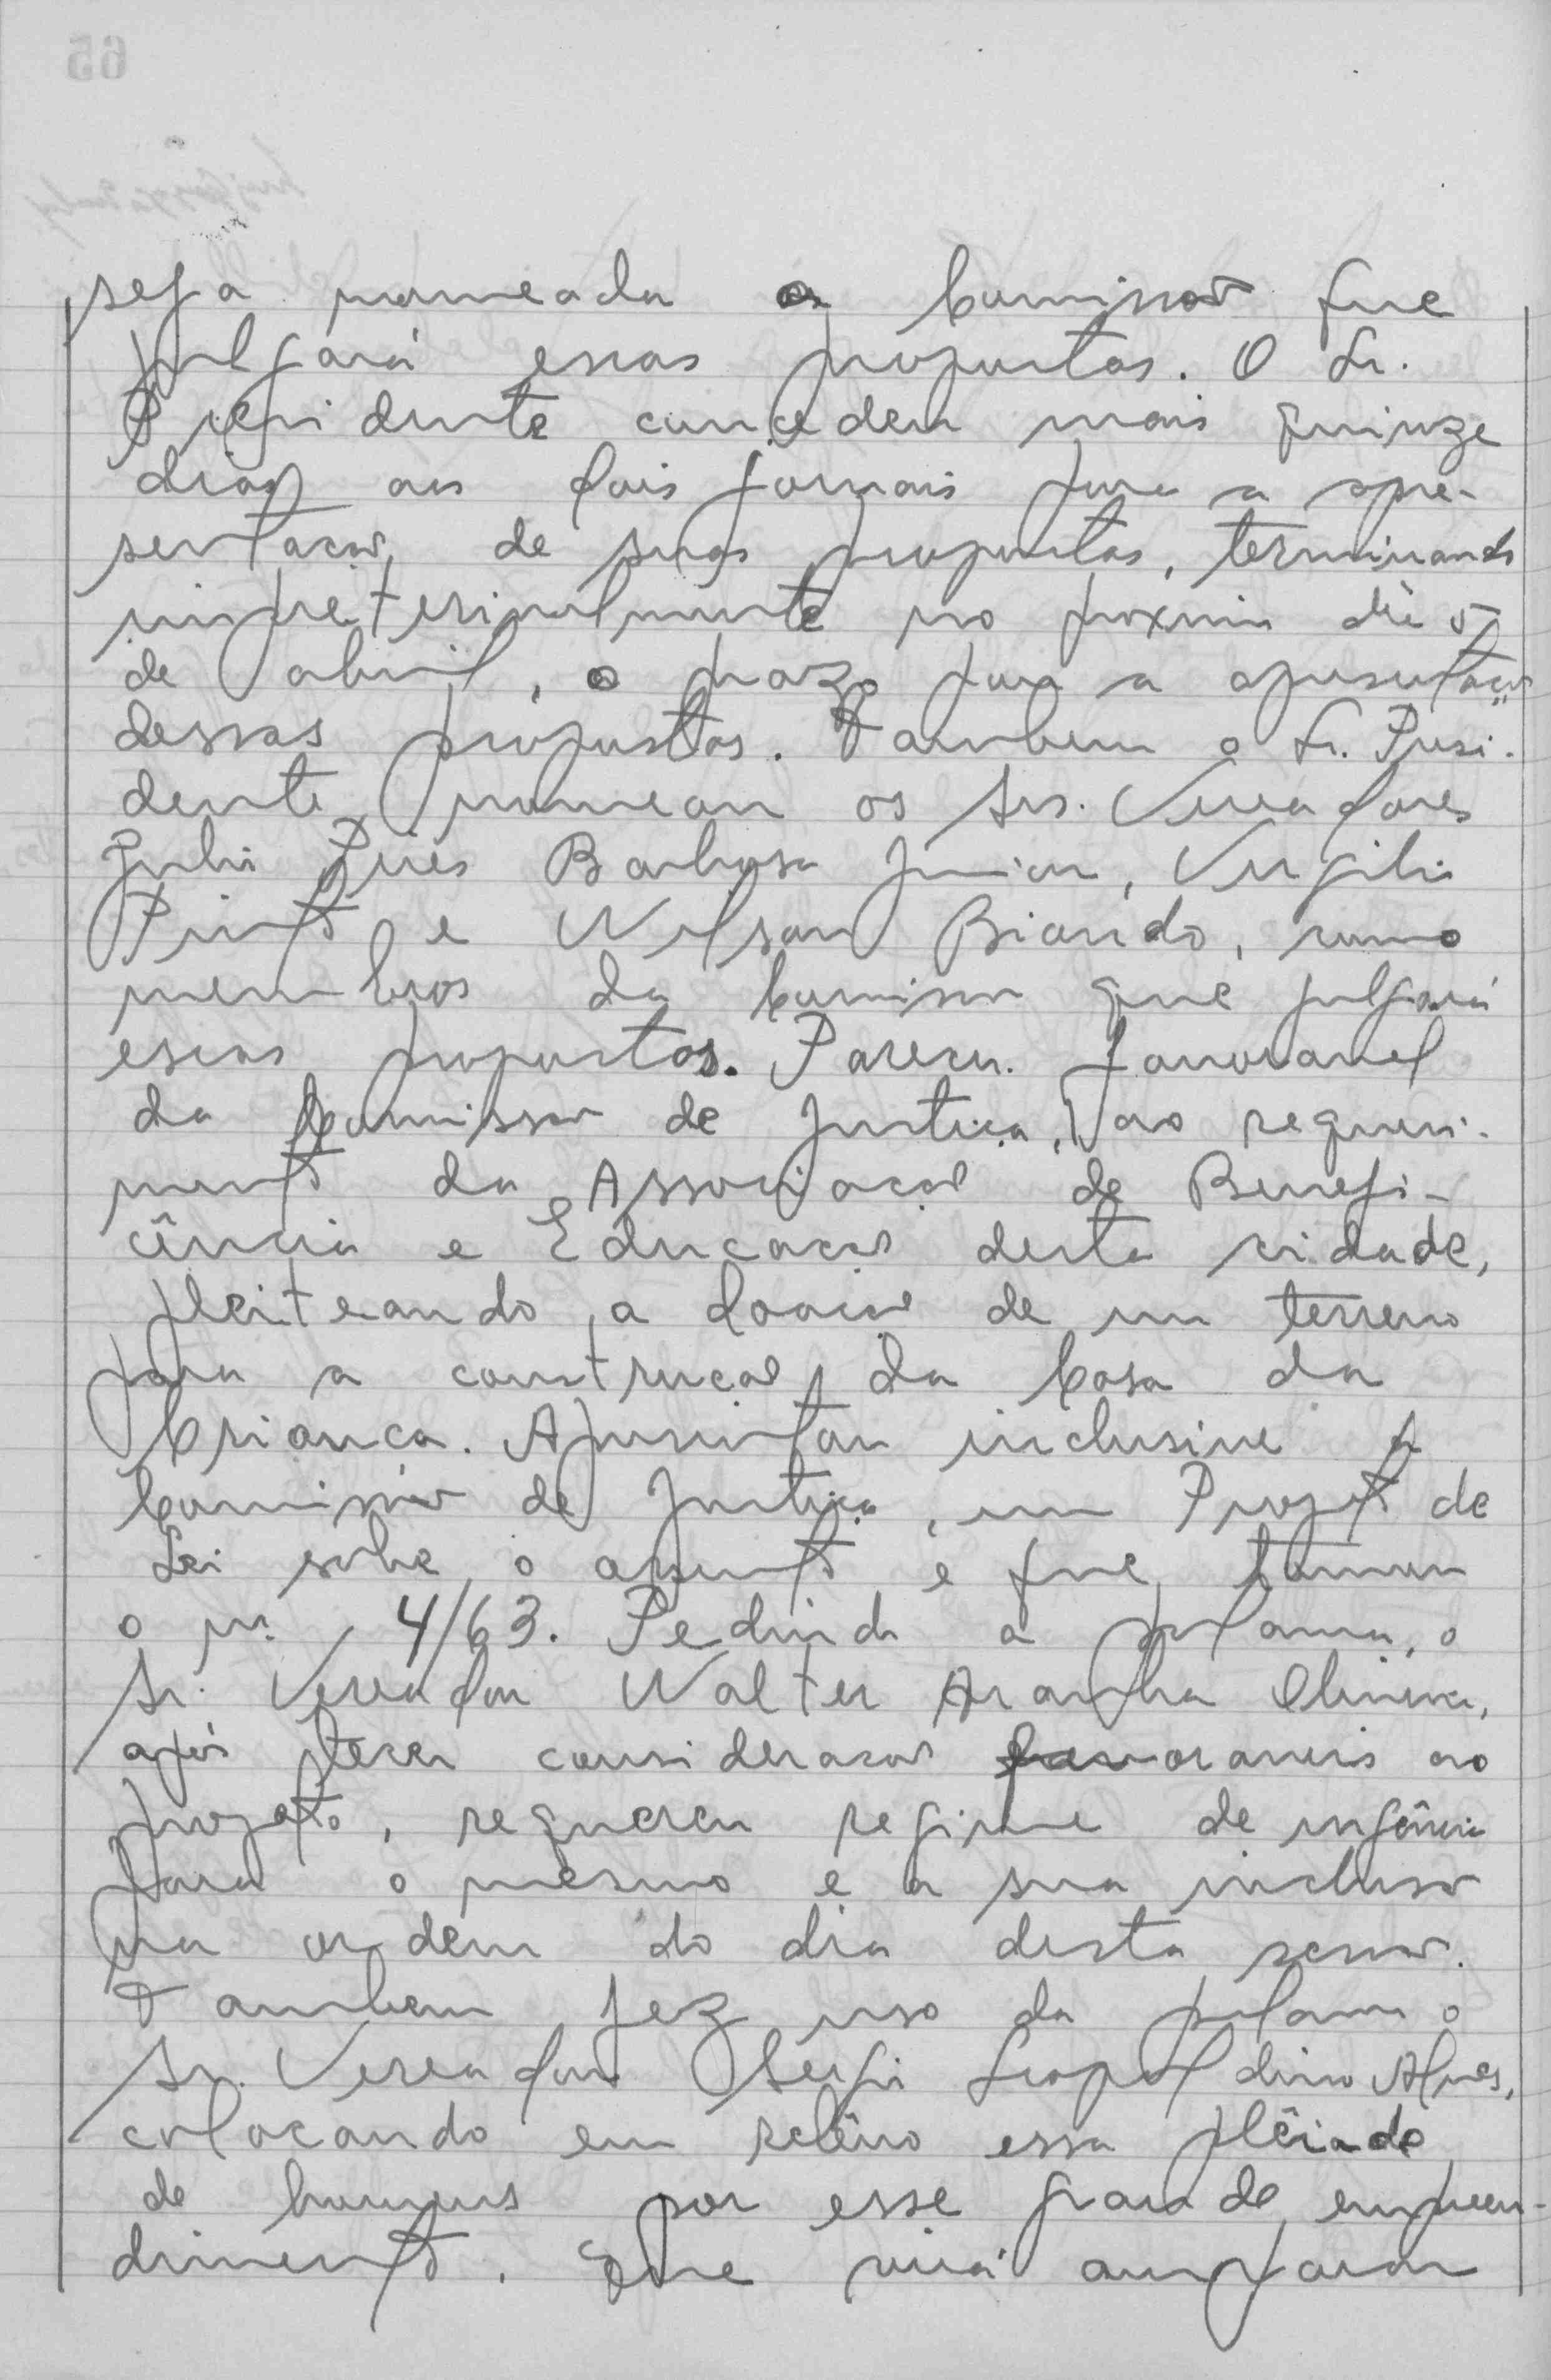 seja nomeada a Comissão que
julgará essas propostas. O Sr.
Presidente concedeu mais quinze
dias aos dois jornais para a apre-
sentação de suas propostas, terminando
impreterivelmente no proximo dia 5
de abril, o prazo para a apresentação
dessas propostas. Tambem o Sr. Presi-
dente nomeou os Srs. Vereadores
Julio Pires Barbosa Junior, Virgilio
Pinto e Wilson Biondo, como
membros da Comissão que julgará
essas propostas. Parecer favoravel
da Comissão de Justiça, ao requeri-
mento da Associação de Benefi-
cência e Educação desta cidade,
pleiteando a doação de um terreno
para a construção da Casa da
Criança. Apresentou inclusive a
Comissão de Justiça, um Projeto de
Lei sobre o assunto e que tomou
o nº 4/63. Pedindo a palavra, o
Sr. Vereador Walter Aranha Oliveira,
após tecer consideração favoraveis ao
projeto, requereu regime de urgência
para o mesmo e a sua inclusão
na ordem do dia desta sessão.
Tambem fez uso da palavra o
Sr. Vereador Sergio Leopoldino Alves,
colocando em relêvo essa plêiade
de homens por esse grande empreen-
dimento. Que virá amparar